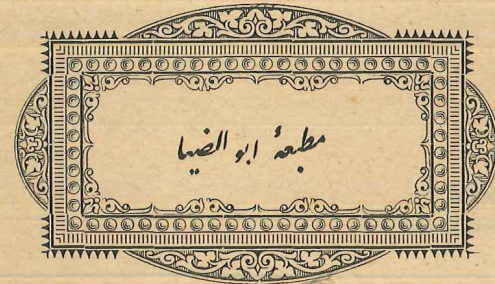 مطبعهٔ ابو الضیا